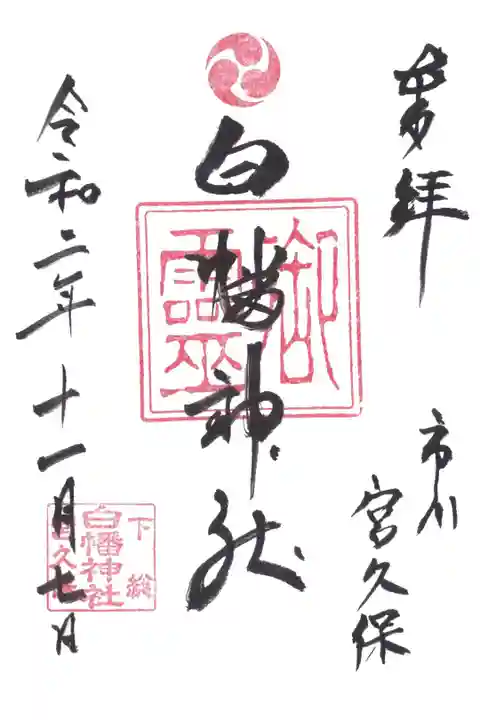 奉拝
市川
宮久保
白幡神社
御靈
令和二年十一月七日
下総
白幡神社
宮久保